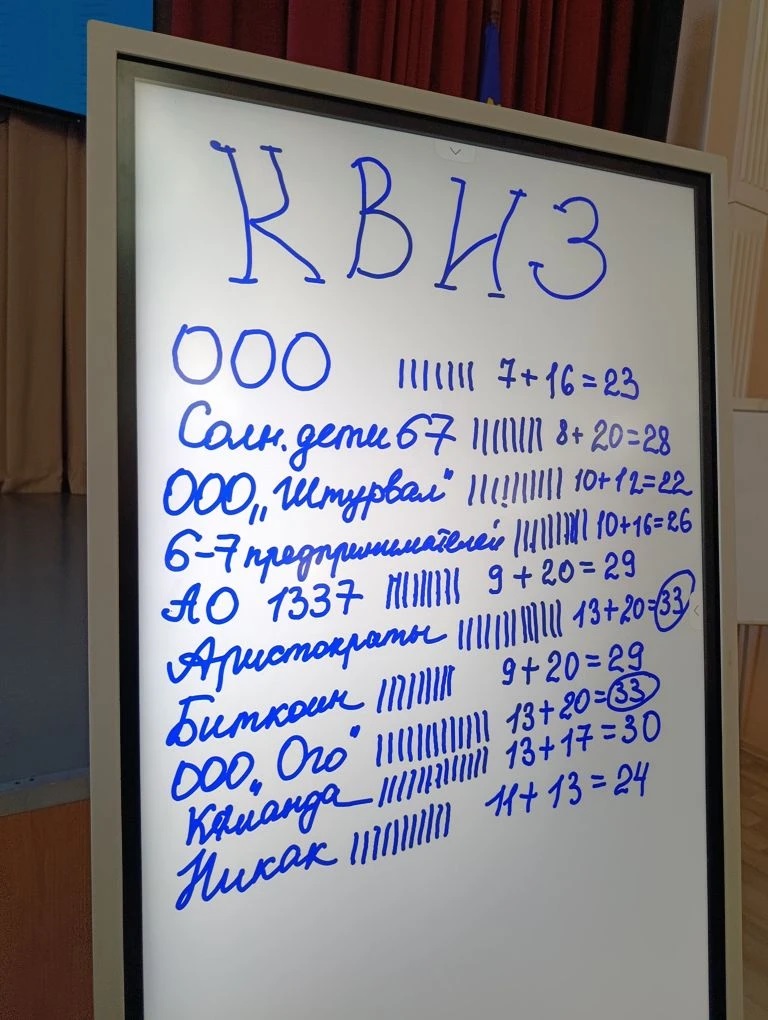 КВИЗ
ООО ||||||| 7+16=23
Солн. дети 67 |||||||| 8+20=28
ООО „Штурвал" |||||||||| 10+12=22
6-7 предпринимателей |||||||||| 10+16=26
АО 1337 ||||||||| 9+20=29
Аристократы ||||||||||||| 13+20=33
Биткоин ||||||||| 9+20=29
ООО „Ого" ||||||||||||| 13+20=33
Команда ||||||||||||| 13+17=30
Никак ||||||||||| 11+13=24